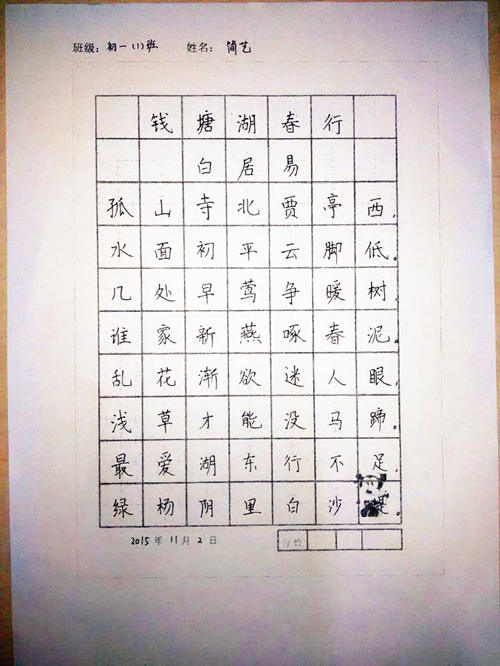 班级：初一（1）班 姓名：简艺
钱塘湖春行
白居易
孤山寺北贾亭西，
水面初平云脚低。
几处早莺争暖树，
谁家新燕啄春泥。
乱花渐欲迷人眼，
浅草才能没马蹄。
最爱湖东行不足，
绿杨阴里白沙堤。
2015年11月2日 分数